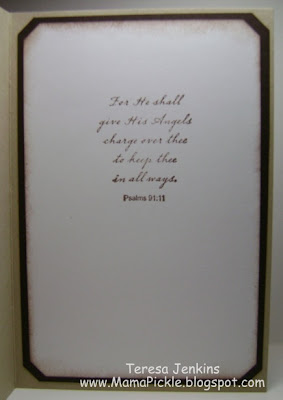 For He shall
give His Angels
charge over thee
to keep thee
in all ways.
Psalms 91:11
Teresa Jenkins
www.MamaPickle.blogspot.com